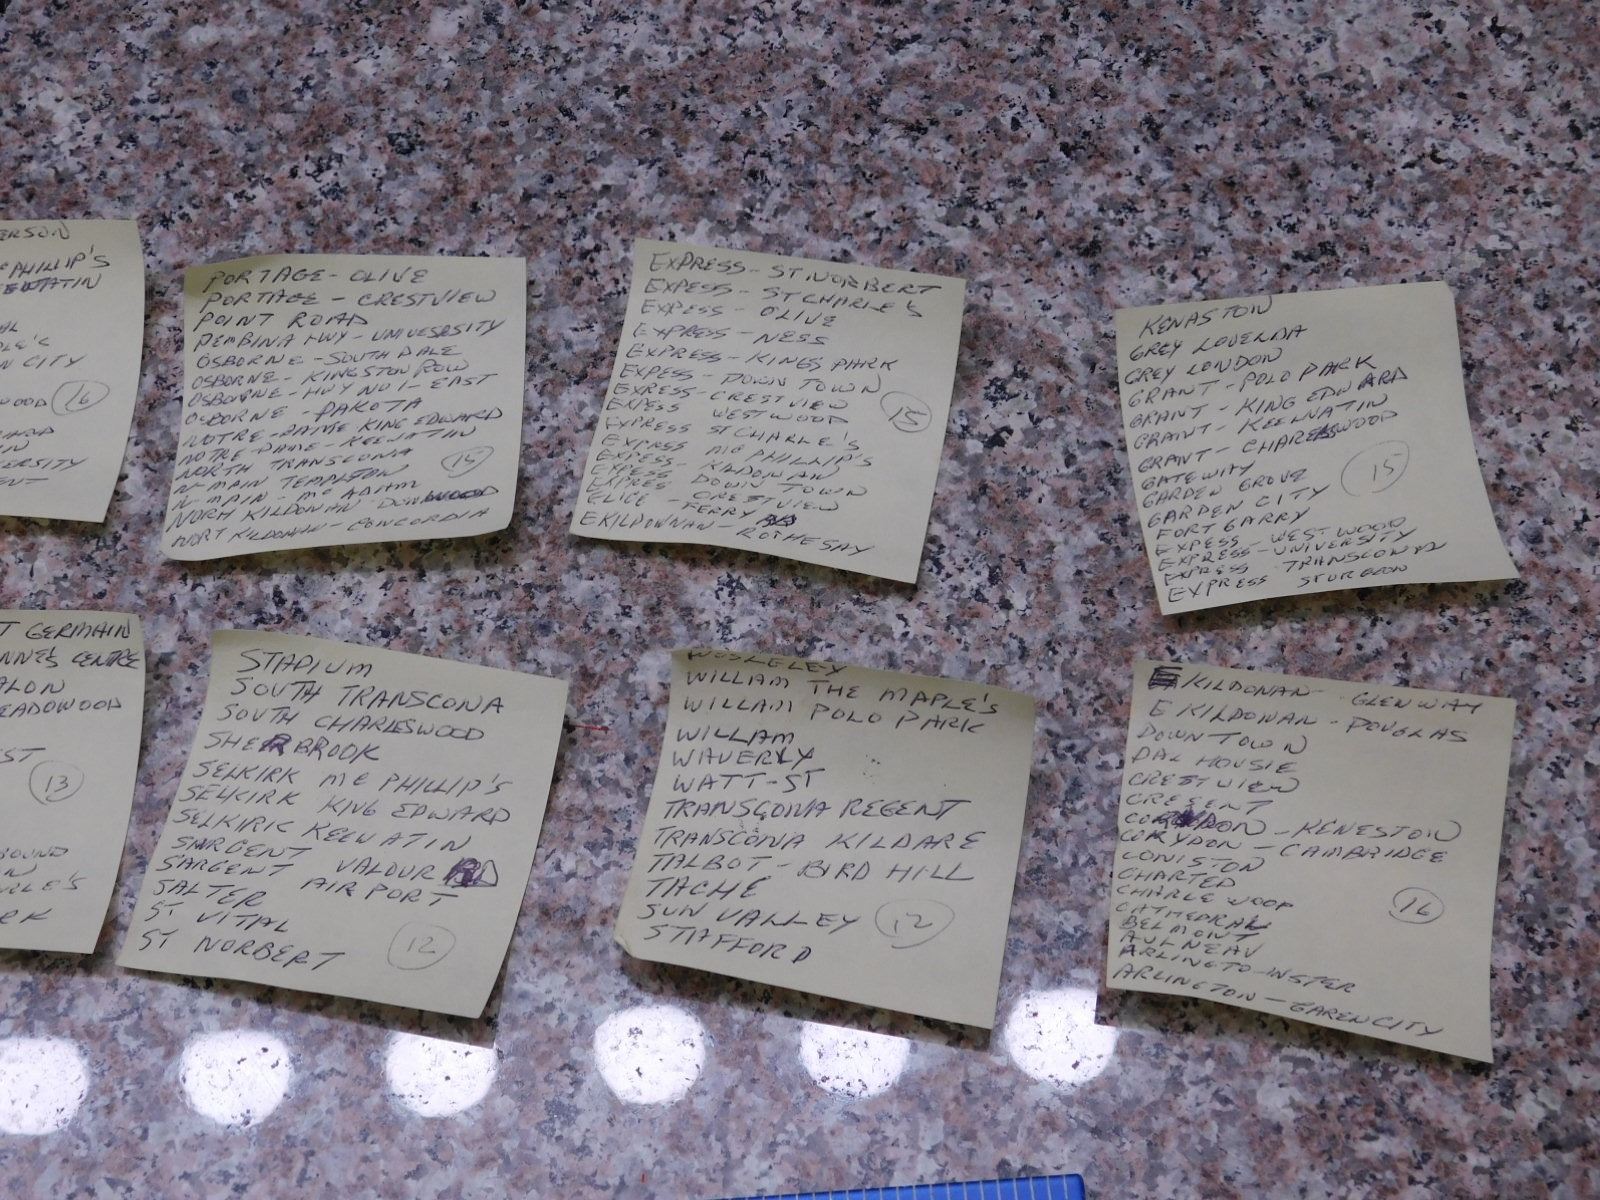 ERSON
PHILLIP'S
AL
N CITY
WOOD
16
ERSITY
ENT
PORTAGE - OLIVE
PORTAGE - CRESTVIEW
POINT ROAD
PEMBINA HWY - UNIVESRSITY
OSBORNE - SOUTH DALE
OSBORNE - KINGSTON ROW
OSBOVRNE - HWY NO 1 - EAST
OSBORNE - DAKOTA
NOTRE - DAME KING EDWARD
NOTRE - DAME - KEEWATIN
NORTH TRANSCONA
N-MAIN TEMPLETON
N-MAIN - MC ADAM
NORTH KILDONAN DONWOOD
NORT KILDONAN - CONCORDIA
15
EXPRESS - ST NORBERT
EXPESS - ST CHARLE'S
EXPESS - OLIVE
EXPRESS - NESS
EXPRESS - KINGS PARK
EXPESS - DOWN TOWN
EXPRESS - CRESTVIEW
EXPESS WESTWOOD
EXPRESS ST CHARLE'S
EXPRESS MC PHILLIP'S
EXPESS - KILDONAN
EXPRESS DOWN TOWN
ELICE - CRESTVIEW
FERRY
E KILDOWNAN - ROTHESAY
15
KENASTON
GREY LOUELDA
GREY LONDON
GRANT - POLO PARK
GRANT - KING EDWARD
GRANT - KEEWATIN
GRANT - CHARESWOOD
GATEWAY
GARDEN GROVE
GARDEN CITY
FORT GARRY
EXPESS - WEST WOOD
EXPRESS - UNIVERSITY
EXPRESS TRANSCONA
EXPRESS STURGEON
15
T GERMAIN
NNE'S CENTRE
ALON
EADOWOOD
ST
13
BOUND
N
RLE'S
RK
STADIUM
SOUTH TRANSCONA
SOUTH CHARLESWOOD
SHERBROOK
SELKIRK MC PHILLIP'S
SELKIRK KING EDWARD
SELKIRK KEEWATIN
SARGENT
SARGENT VALOUR RD
SALTER AIRPORT
ST VITAL
ST NORBERT
12
WESLELEY
WILLIAM THE MAPLE'S
WILLAM POLO PARK
WILLIAM
WAUERLY
WATT-ST
TRANSCONA REGENT
TRANSCONA KILDARE
TALBOT - BIRD HILL
TACHE
SUN VALLEY
STAFFORD
12
E KILDONAN - GLENWAY
E KILDONAN - DOUGLAS
DOWN TOWN
DALHOUSIE
CRESTVIEW
CRESENT
CORYDON - KENESTON
CORYDON - CAMBRIDGE
CONISTON
CHARTED
CHARLE WOOD
CATHEDRAL
BELMONT
AULNEAU
ARLINGTO - INSTER
ARLINGTON - GAREN CITY
16